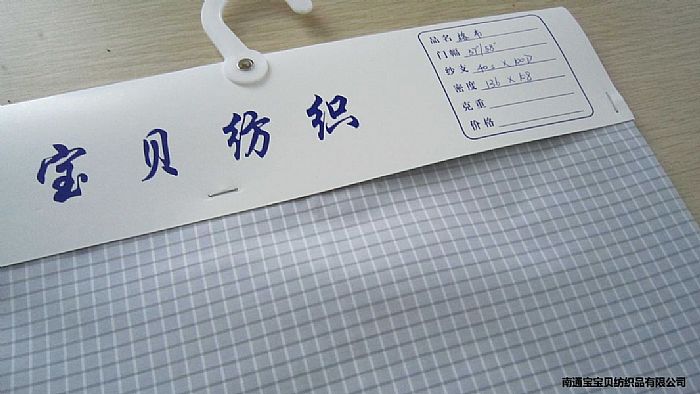 宝贝纺织
品名
门幅 57/58"
纱支 40s x
密度 136 x
克重
价格
南通宝宝贝纺织品有限公司